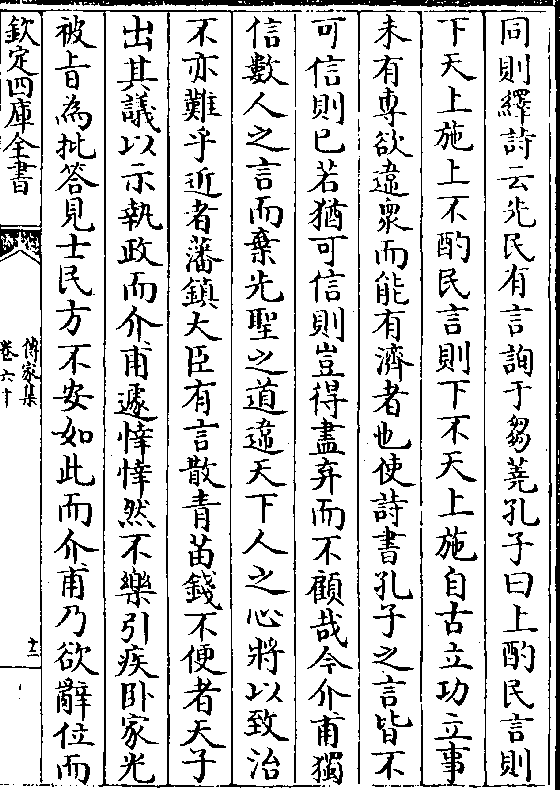 同則繹詩云先民有言詢于芻蕘孔子曰上酌民言則
下天上施上不酌民言則下不天上施自古立功立事
未有專欲違衆而能有濟者也使詩書孔子之言皆不
可信則已若猶可信則豈得盡弃而不顧哉今介甫獨
信數人之言而棄先聖之道違天下人之心將以致治
不亦難乎近者藩鎮大臣有言散青苗錢不便者天子
出其議以示執政而介甫遽悻悻然不樂引疾卧家光
被㫖為批答見士民方不安如此而介甫乃欲辭位而
欽定四庫全書
傳家集
卷六十
十二